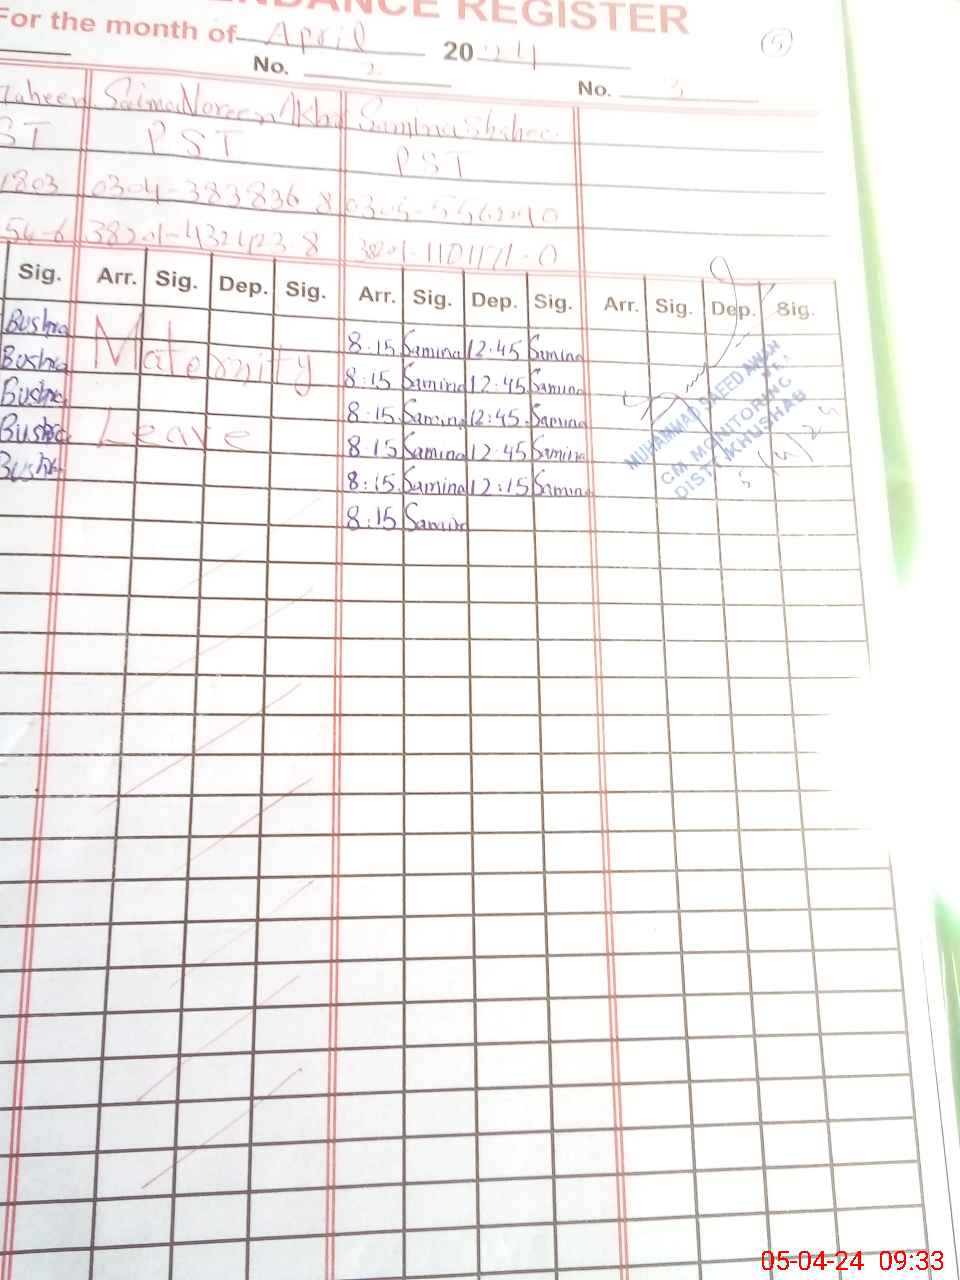 NDANCE REGISTER
For the month of April 2024
5
No. 2 No. 3
Saima Noreen Samina
ST PST PST
1803 0304-3838368
54-6
Sig. Arr. Sig. Dep. Sig. Arr. Sig. Dep. Sig. Arr. Sig. Dep. Sig.
Bushra Maternity 8:15 Samina 12:45 Samina
Bushra 8:15 Samina 12:45 Samina
Bushra 8:15 Samina 12:45 Samina
Bushra Leave 8:15 Samina 12:45 Samina
Bushra 8:15 Samina 12:15 Samina
8:15 Samina
MUHAMMAD SAEED AWAN
CM MONITORING
DISTT KHUSHAB
05-04-24 09:33